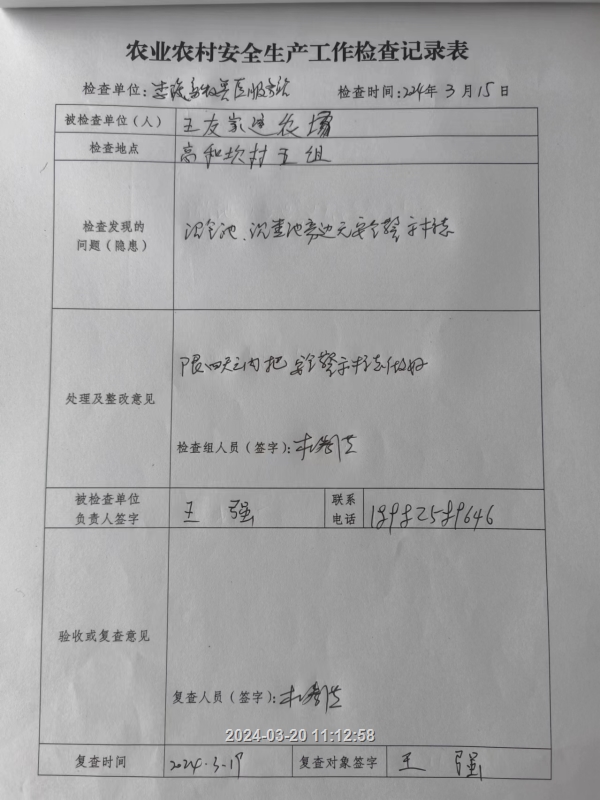 农业农村安全生产工作检查记录表
检查单位: 检查时间:2024年3月15日
被检查单位（人） 王友家庭农场
检查地点 高和坎村五组
检查发现的
问题（隐患）
沼气池、沉渣池旁边无安全警示标志
处理及整改意见
限四天之内把安全警示标志做好
检查组人员（签字）:
被检查单位
负责人签字 王强
联系
电话
验收或复查意见
复查人员（签字）:
2024-03-20 11:12:58
复查时间 2024.3.19 复查对象签字 王强